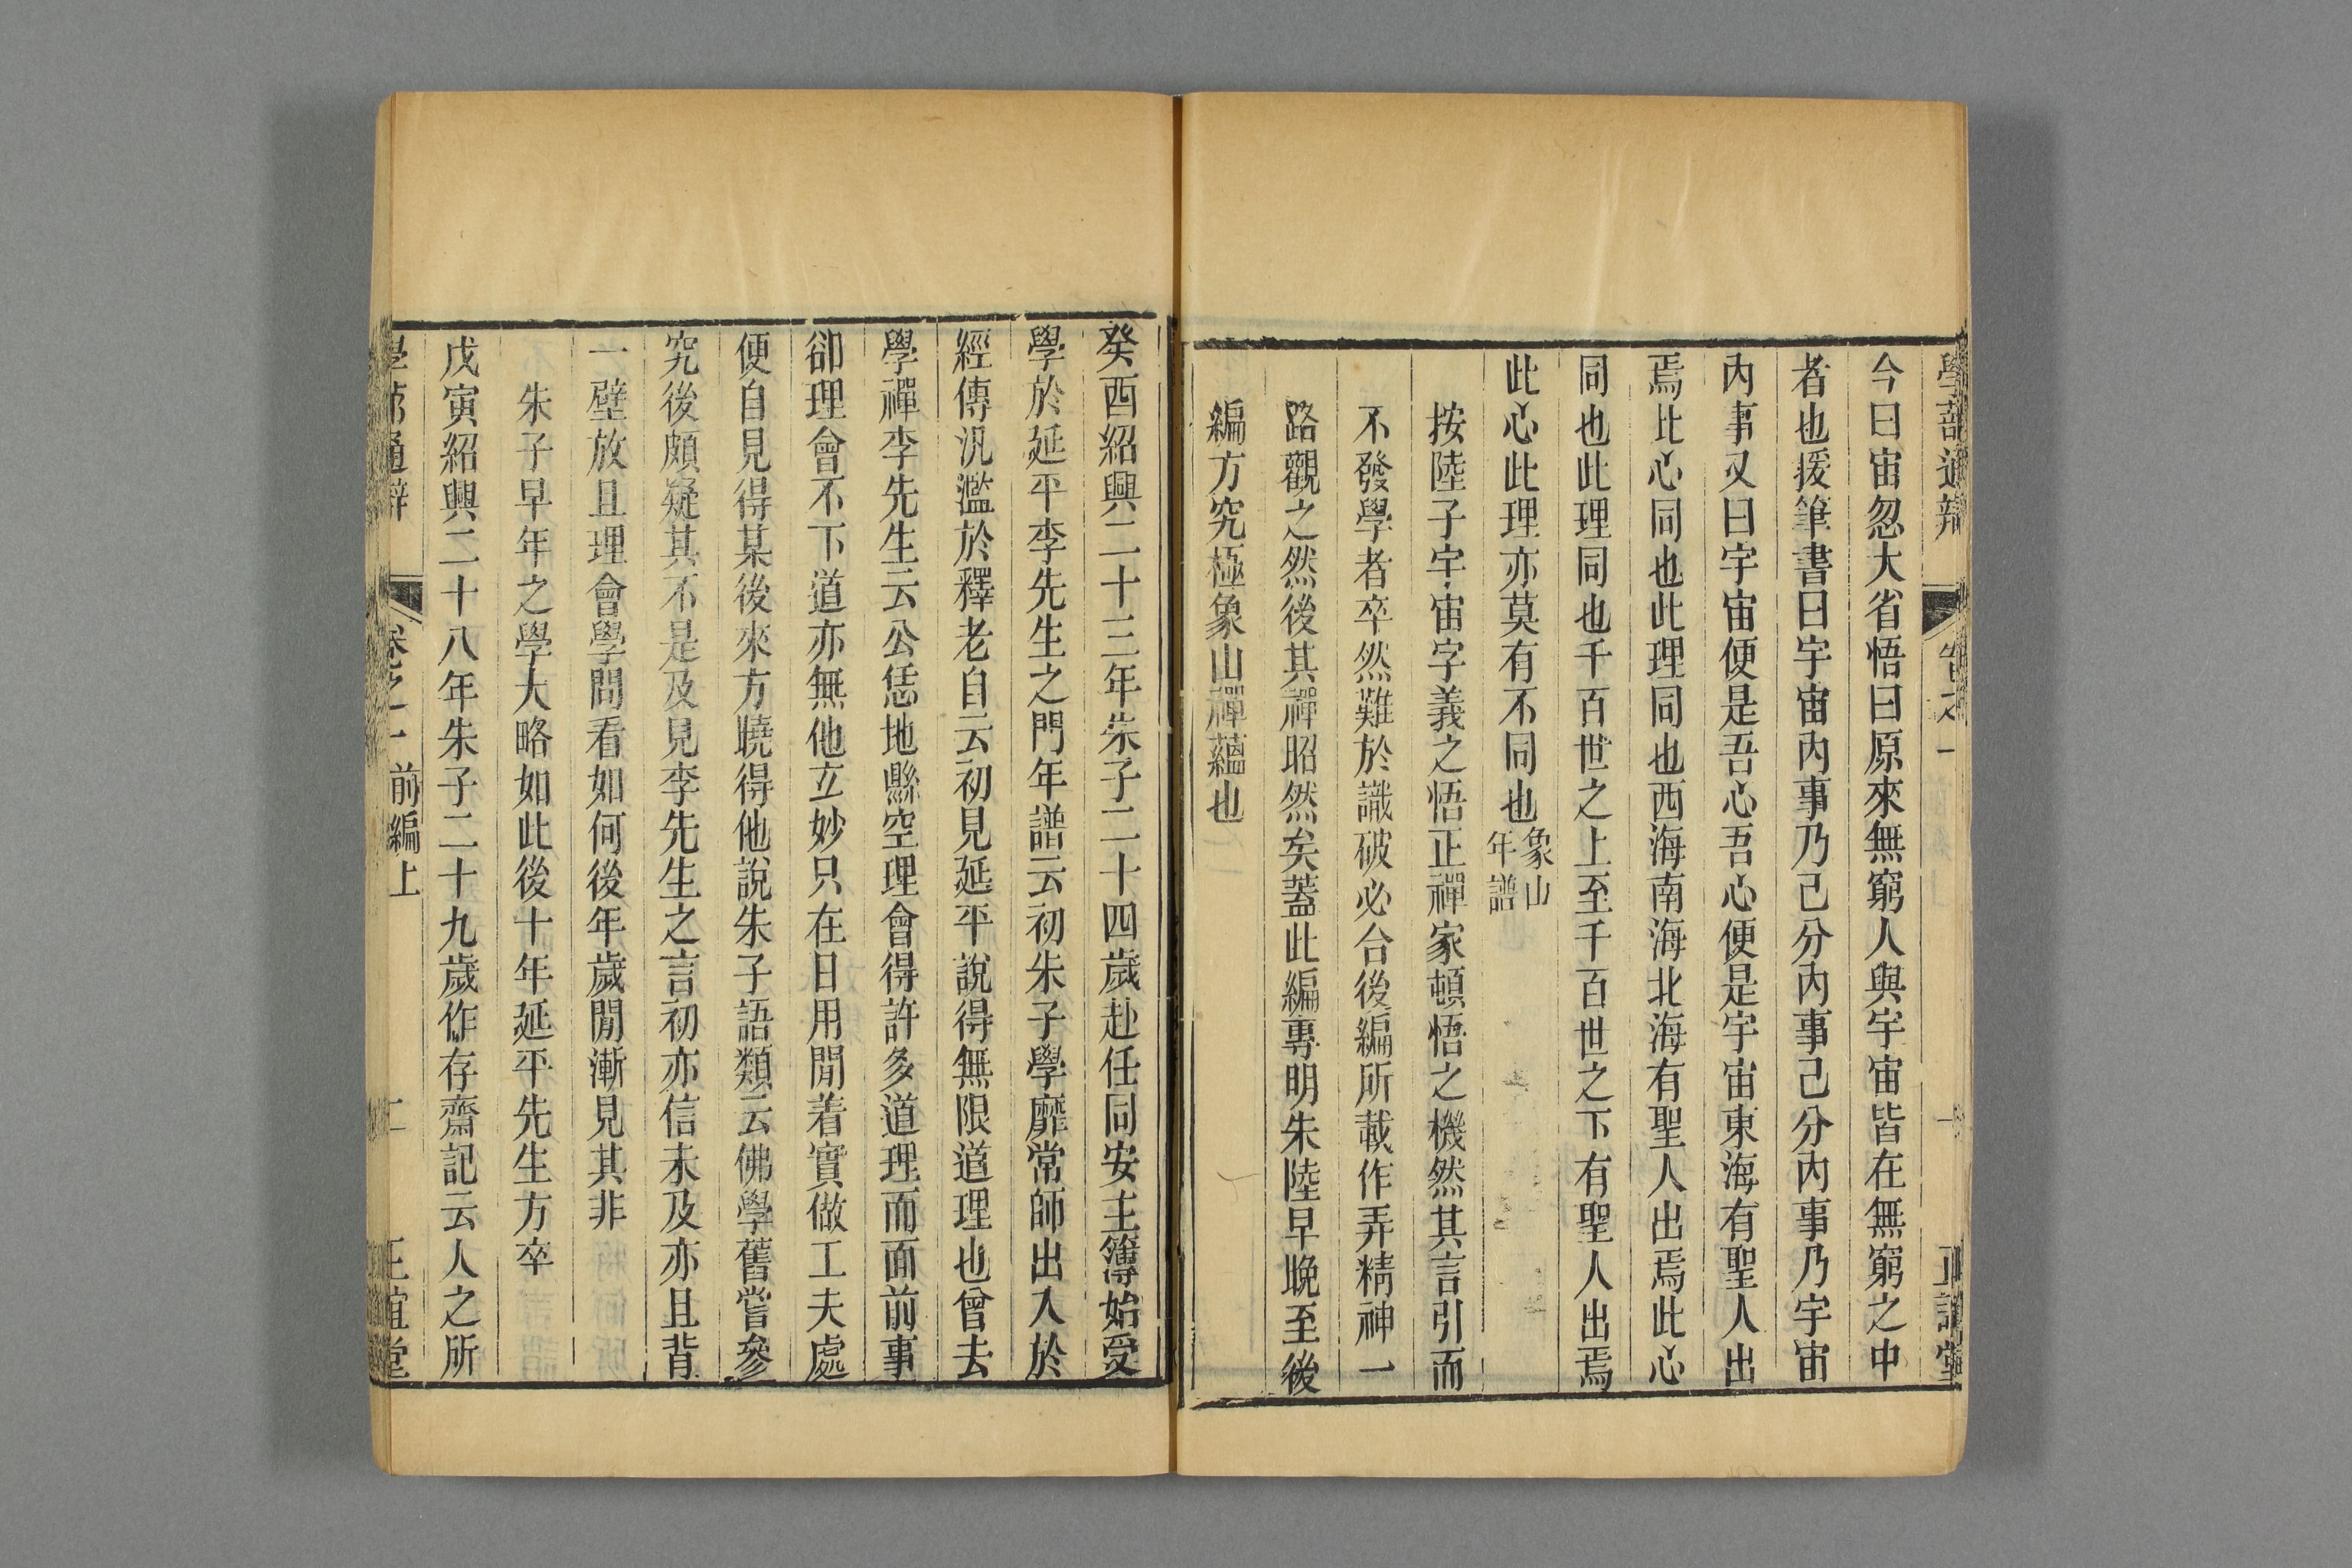 學蔀通辨 卷之一 一 正誼堂
今曰宙忽大省悟曰原來無窮人與宇宙皆在無窮之中
者也援筆書曰宇宙內事乃己分內事己分內事乃宇宙
內事又曰宇宙便是吾心吾心便是宇宙東海有聖人出
焉此心同也此理同也西海南海北海有聖人出焉此心
同也此理同也千百世之上至千百世之下有聖人出焉
此心此理亦莫有不同也象山年譜
按陸子宇宙字義之悟正禪家頓悟之機然其言引而
不發學者卒然難於識破必合後編所載作弄精神一
路觀之然後其禪昭然矣蓋此編專明朱陸早晚至後
編方究極象山禪蘊也
癸酉紹興二十三年朱子二十四歲赴任同安主簿始受
學於延平李先生之門年譜云初朱子學靡常師出入於
經傳汎濫於釋老自云初見延平說得無限道理也曾去
學禪李先生云公恁地懸空理會得許多道理而面前事
卻理會不下道亦無他玄妙只在日用間着實做工夫處
便自見得某後來方曉得他說朱子語類云佛學舊嘗參
究後頗疑其不是及見李先生之言初亦信未及亦且背
一壁放且理會學問看如何後年歲間漸見其非
朱子早年之學大略如此後十年延平先生方卒
戊寅紹興二十八年朱子二十九歲作存齋記云人之所
學蔀通辨 卷之一前編上 二 正誼堂